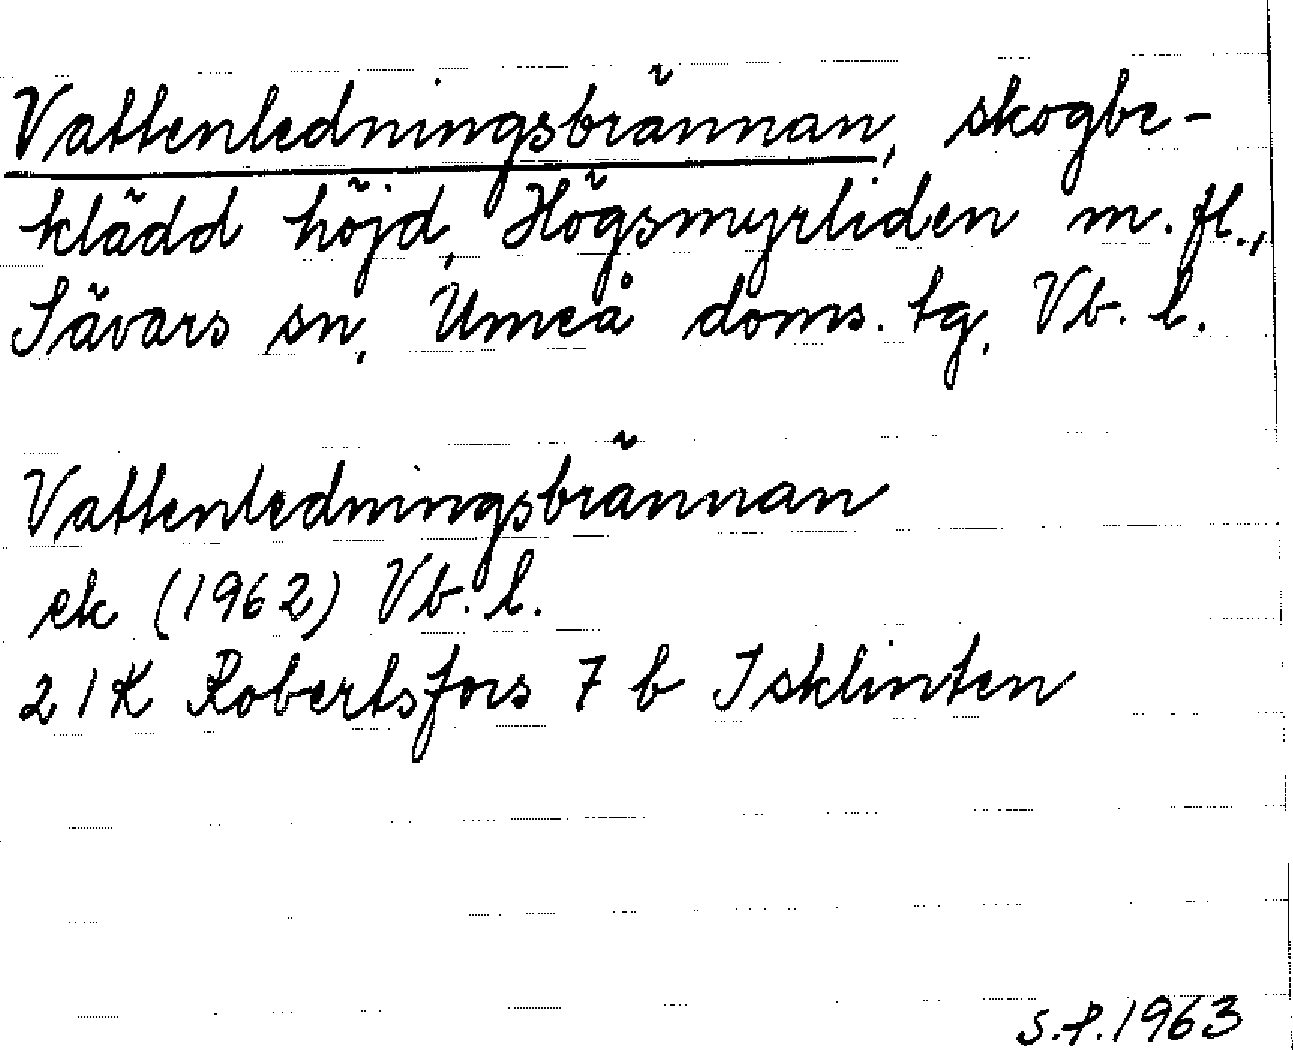 Vattenledningsbrännan, skogbe-
klädd höjd, Högsmyrliden m.fl.,
Sävars sn, Umeå doms. tg, Vb. l.
Vattenledningsbrännan
ek (1962) Vb. l.
21K Robertsfors 7 b Isklinten
S.P. 1963